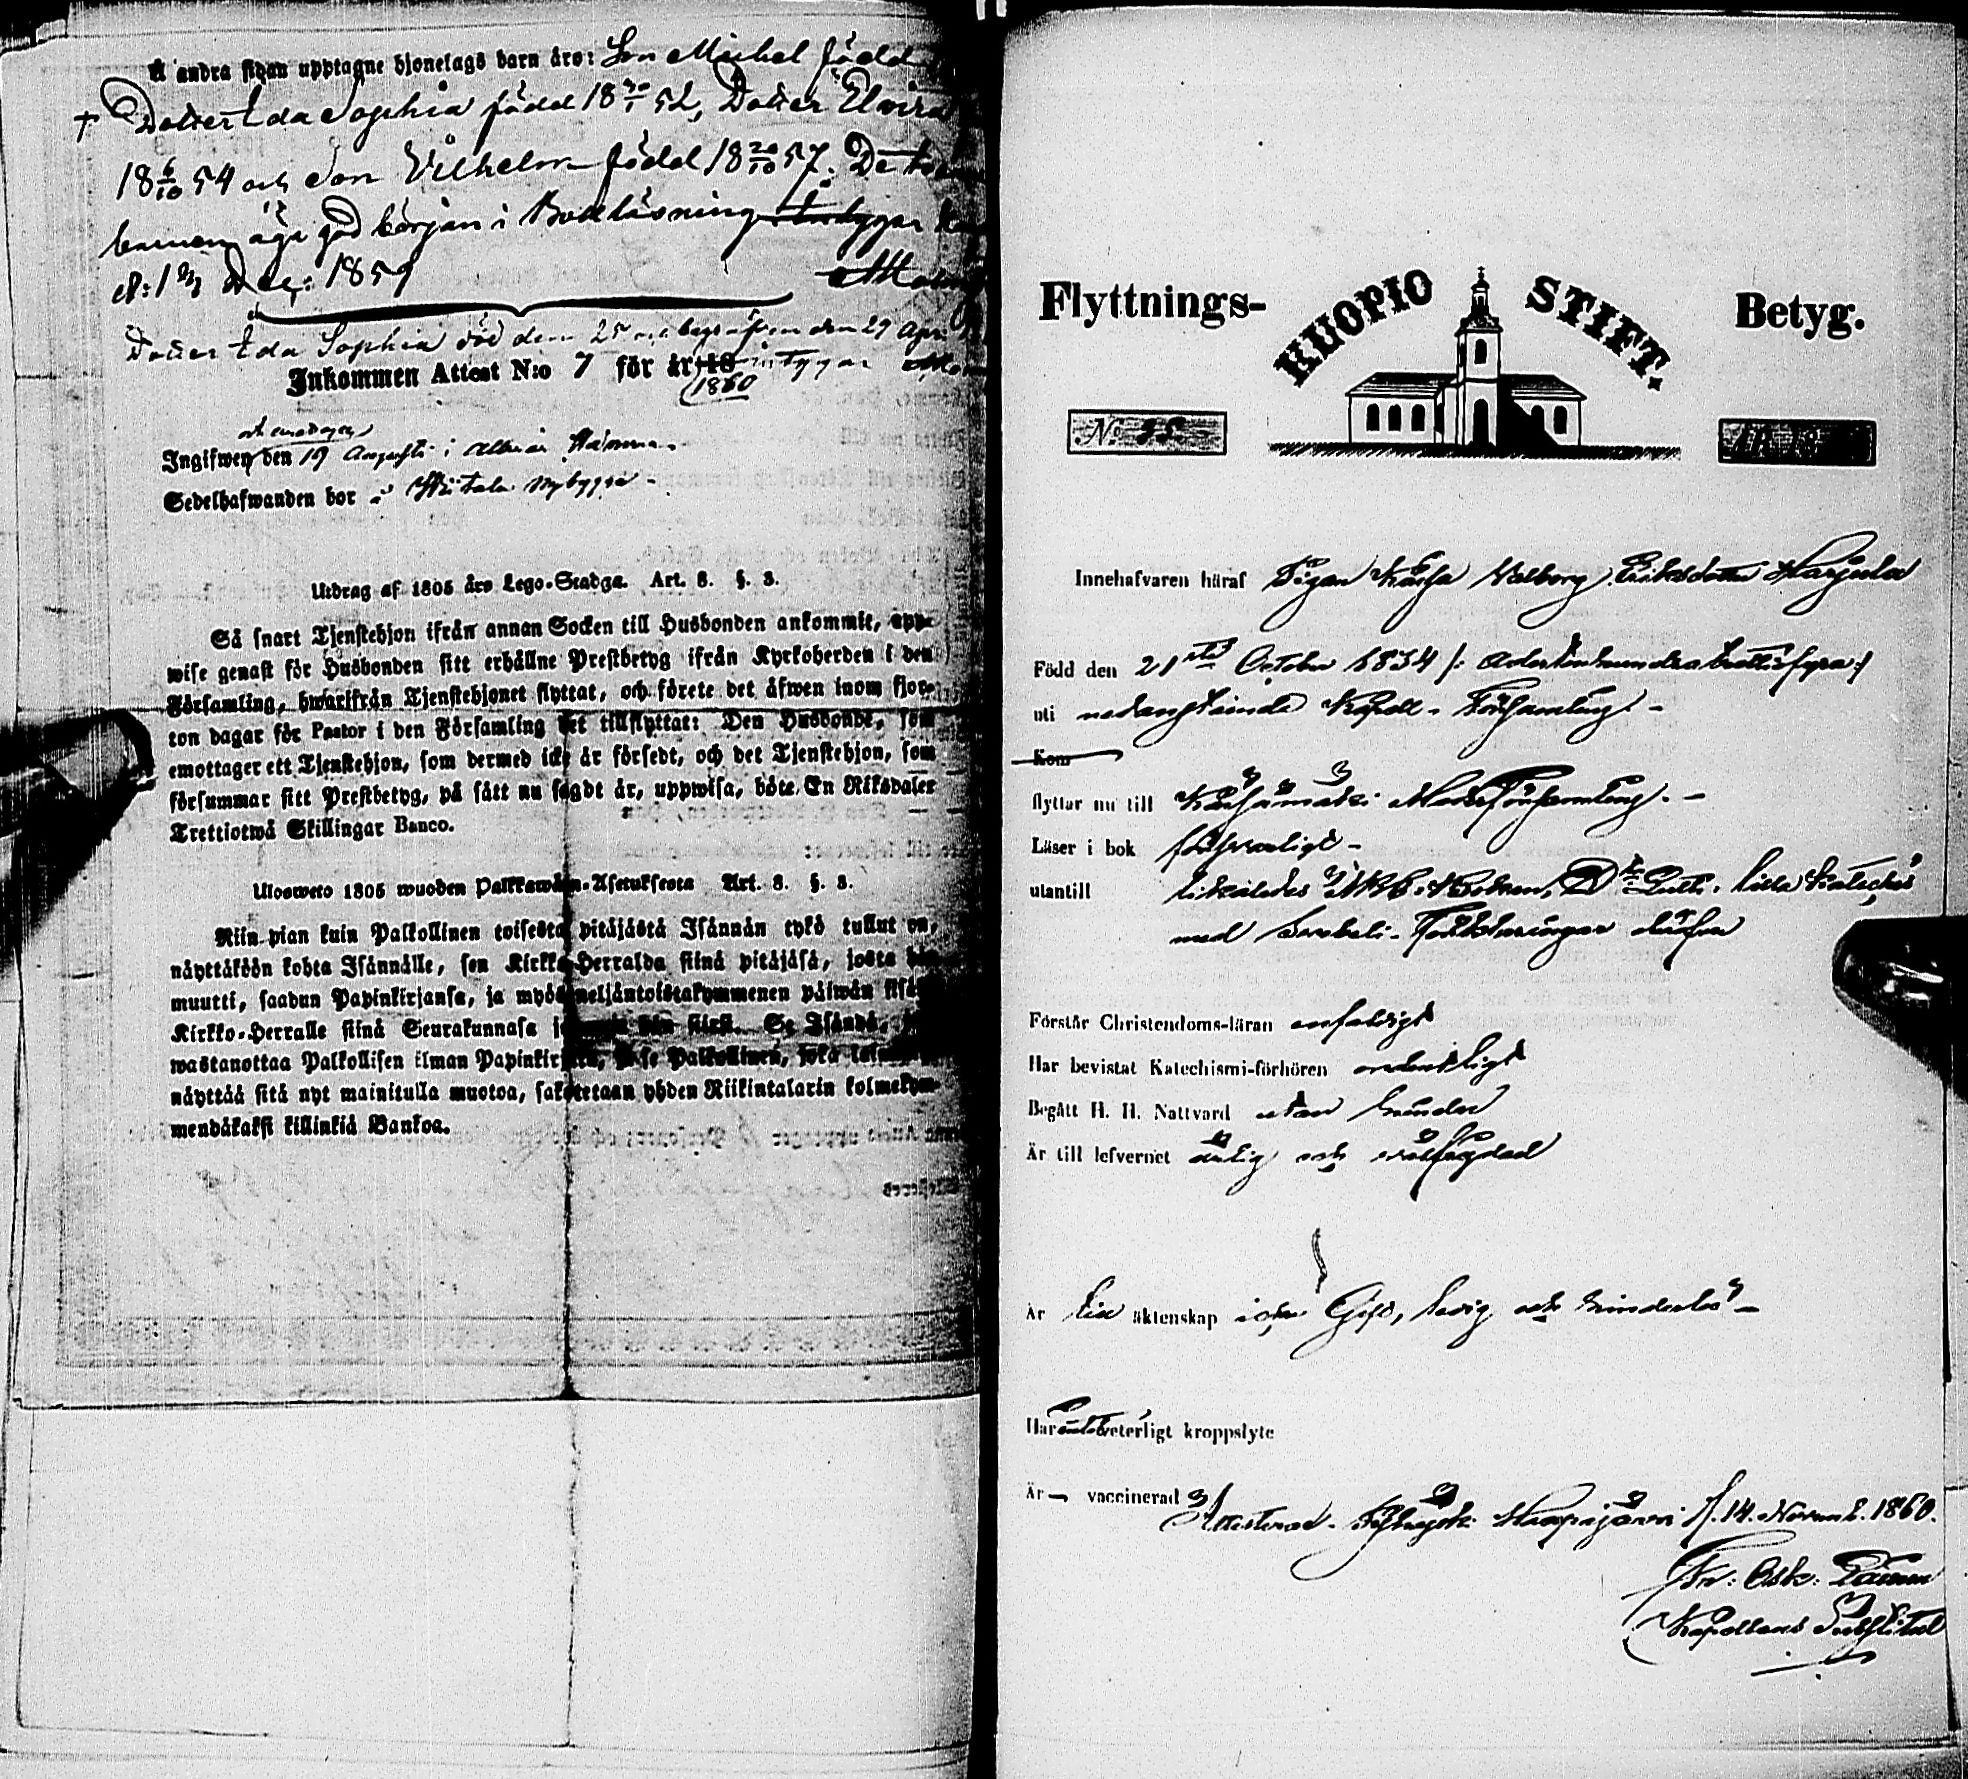 Å andra sidan upptagne hjonelags barn äro: Son Michel född
+ Dotter Ida Sophia född 18 30/1 52, Dotter Elvira
18 6/10 54 och Son Vilhelm född 18 20/10 57. De
barnen äga god början i Bokläsning intygar
d: 1 Dec: 1859
Dotter Ida Sophia död den 25 och begrafven den 29 Apr
Inkommen Attest N:o 7 för år 18 intygar
1860
och emottagen
Ingifwen den 19 Augusti i
Sedelhafwanden bor å nybygge
Utdrag af 1805 års Lego-Stadga. Art. 8. §. 3.
Så snart Tjenstehjon ifrån annan Socken till Husbonden ankommit, upp-
wise genast för Husbonden sitt erhållne Prestbetyg ifrån Kyrkoherden i den
Församling, hwarifrån Tjenstehjonet flyttat, och förete det äfwen inom fjor-
ton dagar för Pastor i den Församling det tillflyttat: Den Husbonde, som
emottager ett Tjenstehjon, som dermed icke är försedt, och det Tjenstehjon, som
försummar sitt Prestbetyg, på sätt nu sagdt är, uppwisa, böte En Riksdaler
Trettiotwå Skillingar Banco.
Ulosweto 1805 wuoden Palkkawäen-Asetuksesta Art. 8. §. 3.
Niin pian kuin Palkollinen toisesta pitäjästä Isännän tykö tullut on,
näyttäköön kohta Isännälle, sen Kirkko-Herralda siinä pitäjäsä, josta hän
muutti, saadun Papinkirjansa, ja myös neljäntoistakymmenen päiwän sisä
Kirkko-Herralle siinä Seurakunnasa hän siirsi. Se Isändä,
wastanottaa Palkollisen ilman Papinkirjata, ja se Palkollinen, joka
näyttää sitä nyt mainitulla muotoa, sakotetaan yhden Riikintalarin kolmekym-
mendäkaksi killinkiä Bankoa.
Flyttnings- KUOPIO STIFT. Betyg.
N:
Innehafvaren häraf Pigan Kaisa Valborg Eriksdotter Harjula
Född den 21sta October 1834 /: adertonhundratrettiofyra :/
uti nedanstående Kapell-Församling -
Kom
flyttar nu till Kärsämäki Moderförsamling. -
Läser i bok försvarligt -
utantill likaledes ABC-Boken, D:r Luth. lilla Kateches
med Svebeli Förklaringar
Förstår Christendoms-läran enfaldigt
Har bevistat Katechismi-förhören ordentligt
Begått H. H. Nattvard utan hinder
Är till lefvernet ärlig och välfrejdad
Är till äktenskap icke Gift, ledig och hinderlös -
Har veterligt kroppslyte
Är - vaccinerad
Attesterad Haapajärvi d. 14. Novemb. 1860.
Fr: Osk:
Kapellans Substitut